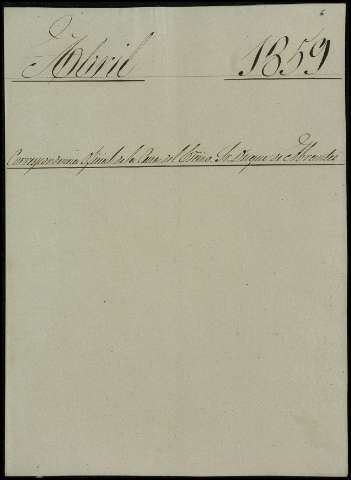 Abril 1859
Correspondencia oficial de la Casa del Exmo. Sr. Duque de Abrantes